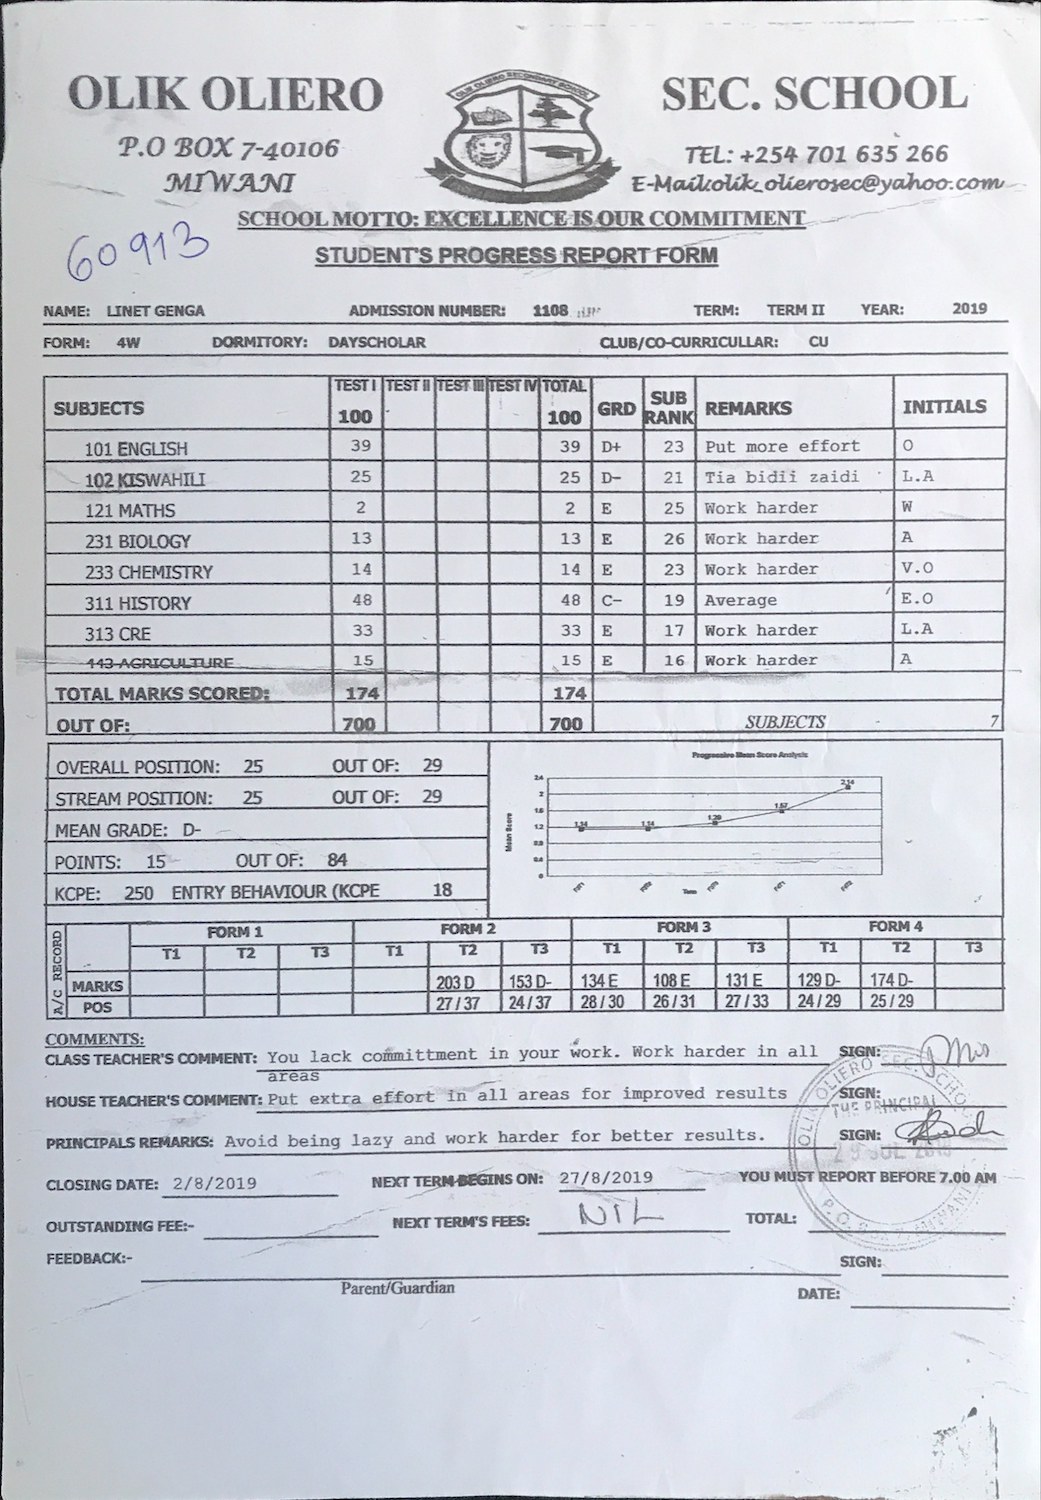 OLIK OLIERO SEC. SCHOOL
OLIK OLIERO SECONDARY SCHOOL
P.O BOX 7-40106
TEL: +254 701 635 266
MIWANI
E-Mail:olik_olierosec@yahoo.com
SCHOOL MOTTO: EXCELLENCE IS OUR COMMITMENT
60913
STUDENT'S PROGRESS REPORT FORM
NAME: LINET GENGA ADMISSION NUMBER: 1108 TERM: TERM II YEAR: 2019
FORM: 4W DORMITORY: DAYSCHOLAR CLUB/CO-CURRICULLAR: CU
SUBJECTS TEST I 100 TEST II TEST III TEST IV TOTAL 100 GRD SUB RANK REMARKS INITIALS
101 ENGLISH 39 39 D+ 23 Put more effort O
102 KISWAHILI 25 25 D- 21 Tia bidii zaidi L.A
121 MATHS 2 2 E 25 Work harder W
231 BIOLOGY 13 13 E 26 Work harder A
233 CHEMISTRY 14 14 E 23 Work harder V.O
311 HISTORY 48 48 C- 19 Average E.O
313 CRE 33 33 E 17 Work harder L.A
443 AGRICULTURE 15 15 E 16 Work harder A
TOTAL MARKS SCORED: 174 174
OUT OF: 700 700 SUBJECTS 7
OVERALL POSITION: 25 OUT OF: 29
STREAM POSITION: 25 OUT OF: 29
MEAN GRADE: D-
POINTS: 15 OUT OF: 84
KCPE: 250 ENTRY BEHAVIOUR (KCPE 18
Progressive Mean Score Analysis
Mean Score
2.4
2
1.6
1.2
0.8
0.4
0
1.14 1.14 1.29 1.57 2.14
Term
A/C RECORD
FORM 1 FORM 2 FORM 3 FORM 4
T1 T2 T3 T1 T2 T3 T1 T2 T3 T1 T2 T3
MARKS 203 D 153 D- 134 E 108 E 131 E 129 D- 174 D-
POS 27/37 24/37 28/30 26/31 27/33 24/29 25/29
COMMENTS:
CLASS TEACHER'S COMMENT: You lack committment in your work. Work harder in all SIGN:
areas
HOUSE TEACHER'S COMMENT: Put extra effort in all areas for improved results SIGN:
PRINCIPALS REMARKS: Avoid being lazy and work harder for better results. SIGN:
OLIK OLIERO SEC. SCHOOL
THE PRINCIPAL
CLOSING DATE: 2/8/2019 NEXT TERM BEGINS ON: 27/8/2019 YOU MUST REPORT BEFORE 7.00 AM
OUTSTANDING FEE:- NEXT TERM'S FEES: NIL TOTAL:
FEEDBACK:- SIGN:
Parent/Guardian
DATE: